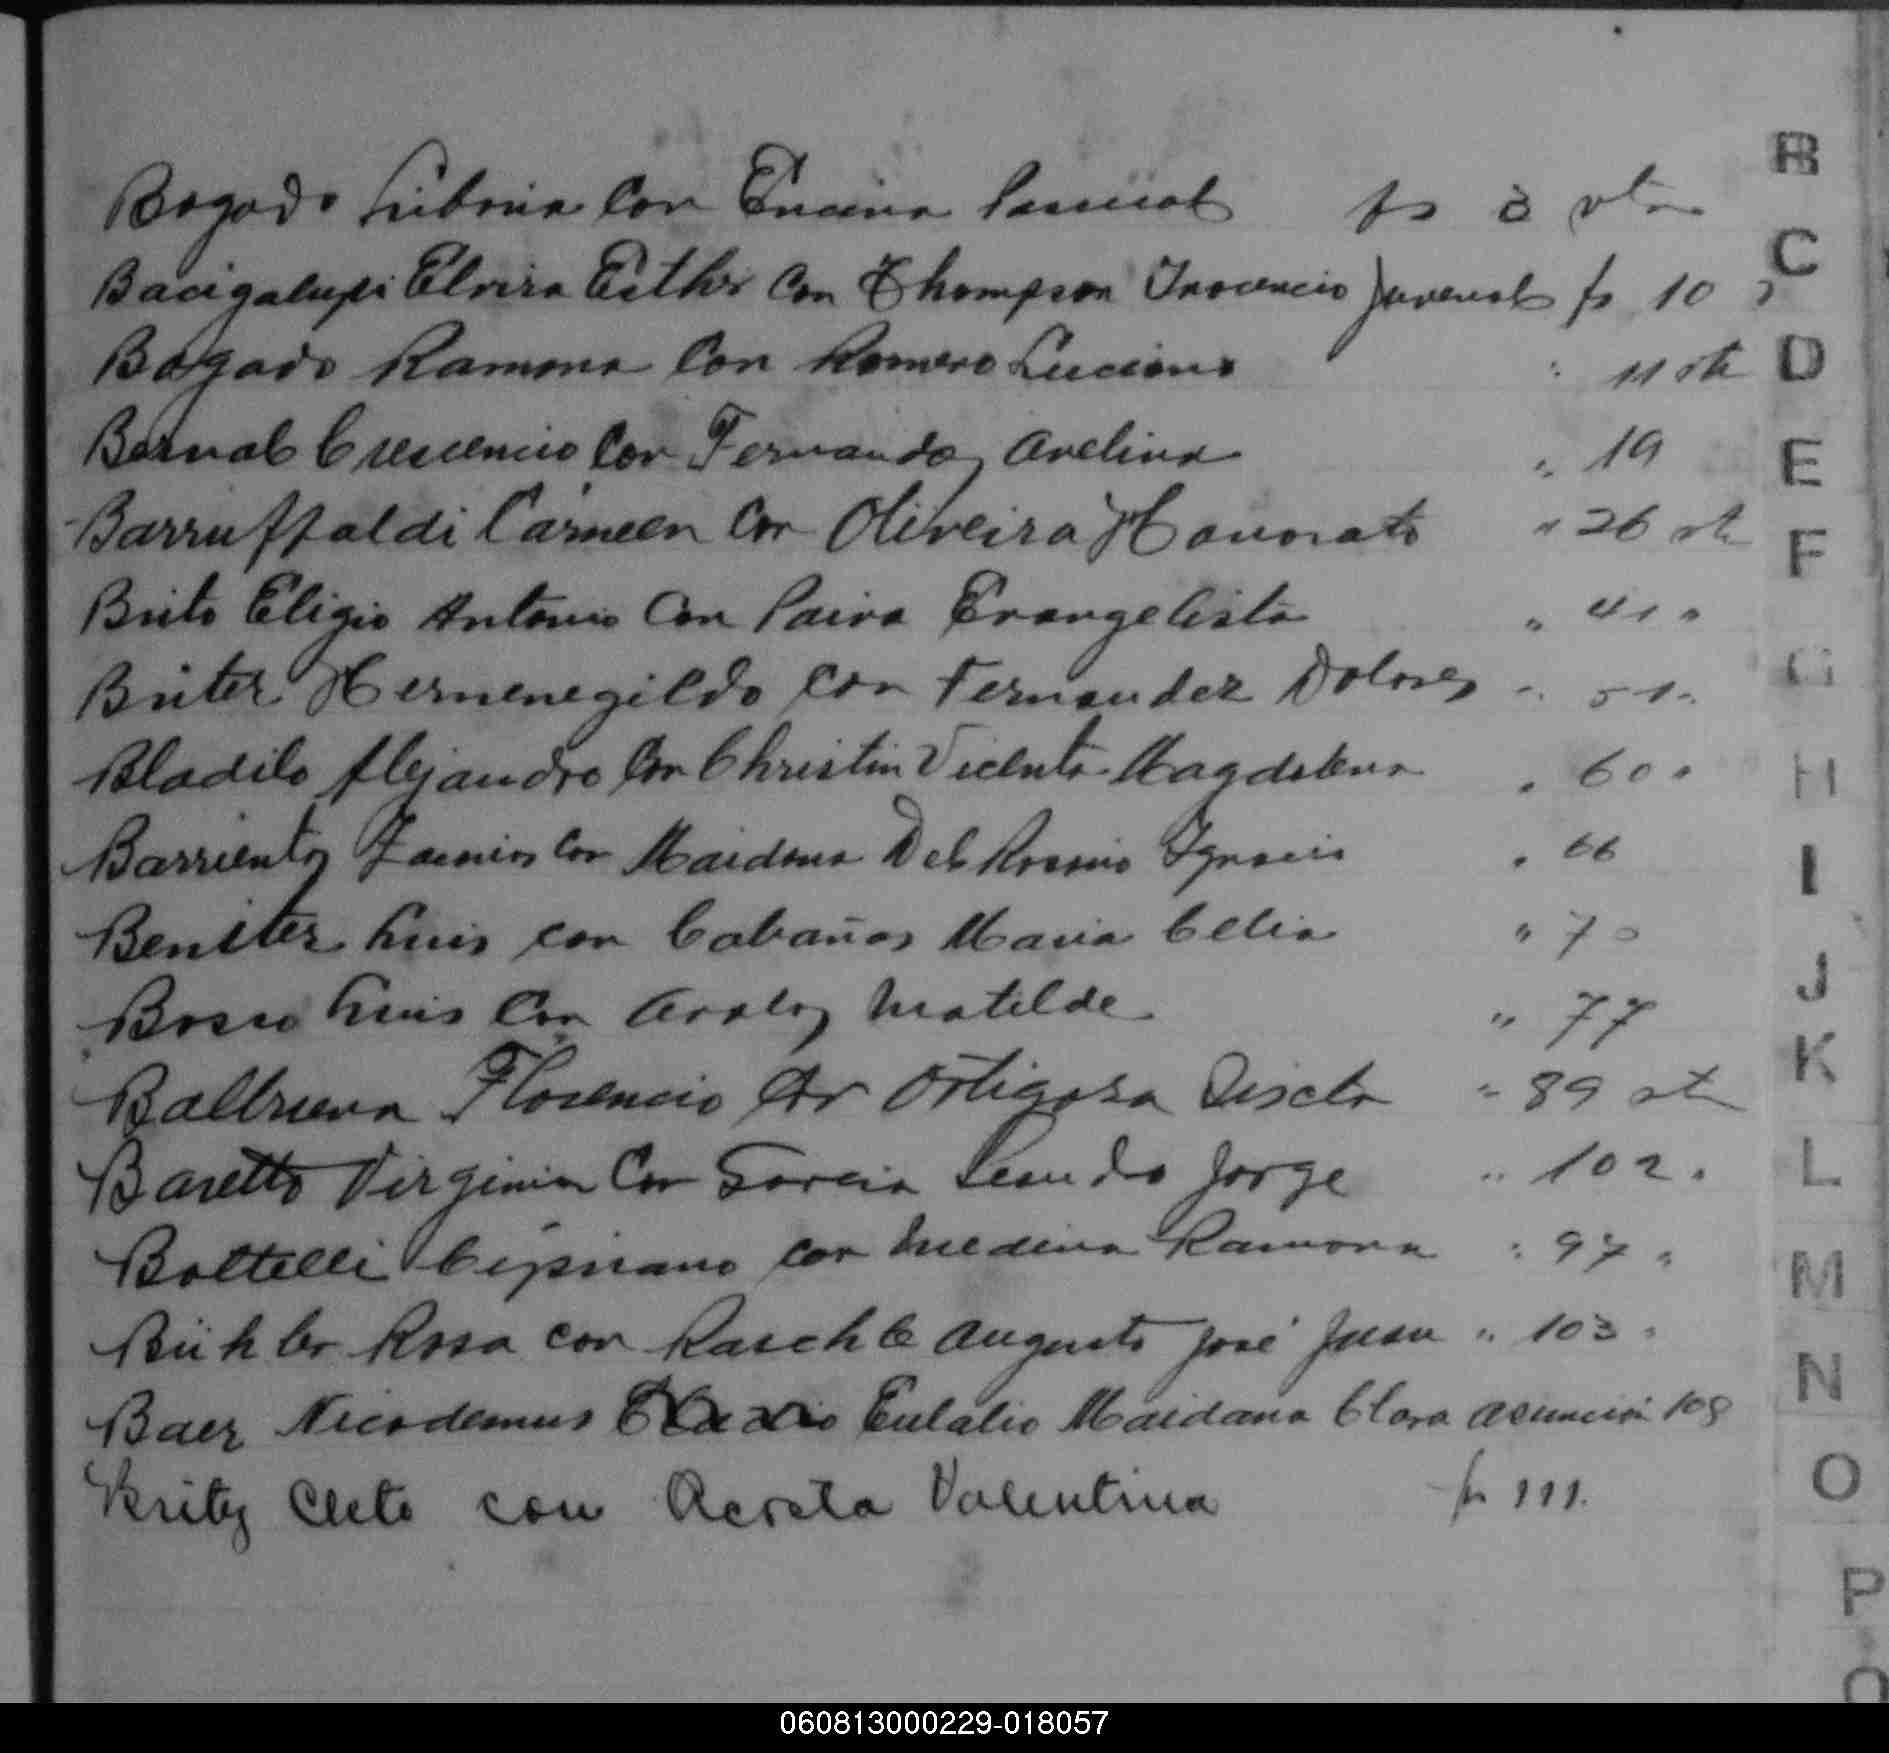 Bogado Liboria Con Encina Pascual fs 3 vta
Bacigalupi Elvira Esther Con Thompson Inocencio Juvenal fs 10 "
Bogado Ramona Con Romero Luciano " 11 vta
Bernal Crescencio Con Fernandez Avelina " 19
Barruffaldi Carmen Con Oliveira Honorato " 26 vta
Brito Eligio Antonio Con Paiva Evangelista " 41 "
Britez Hermenegildo Con Fernandez Dolores " 51 "
Bladilo Alejandro Con Christin Vicenta Magdalena " 60 "
Barrientos con Maidana Del Rosario Ignacia " 66
Benitez Luis con Cabañas Maria Celia " 70
Bosso Luis Con Avalos Matilde " 77
Balbuena Florencio Con Ortigoza " 89 vta
Baretto Virginia Con Garcia Jorge " 102 "
Bottelli Cipriano con Medina Ramona " 97 "
Bühler Rosa con Raschle Augusto José Juan " 103 "
Baez Nicodemus Eulalio Maidana Clara Asunción 108
Britez Cleto con Acosta Valentina fs 111.
B
C
D
E
F
G
H
I
J
K
L
M
N
O
P
Q
060813000229-018057